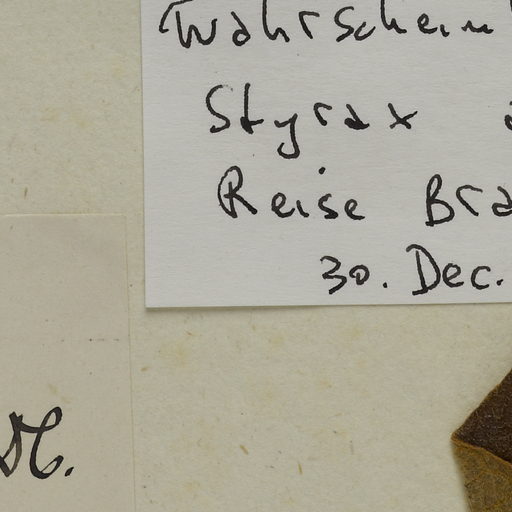 Wahrschein
Styrax
Reise Bra
30. Dec.